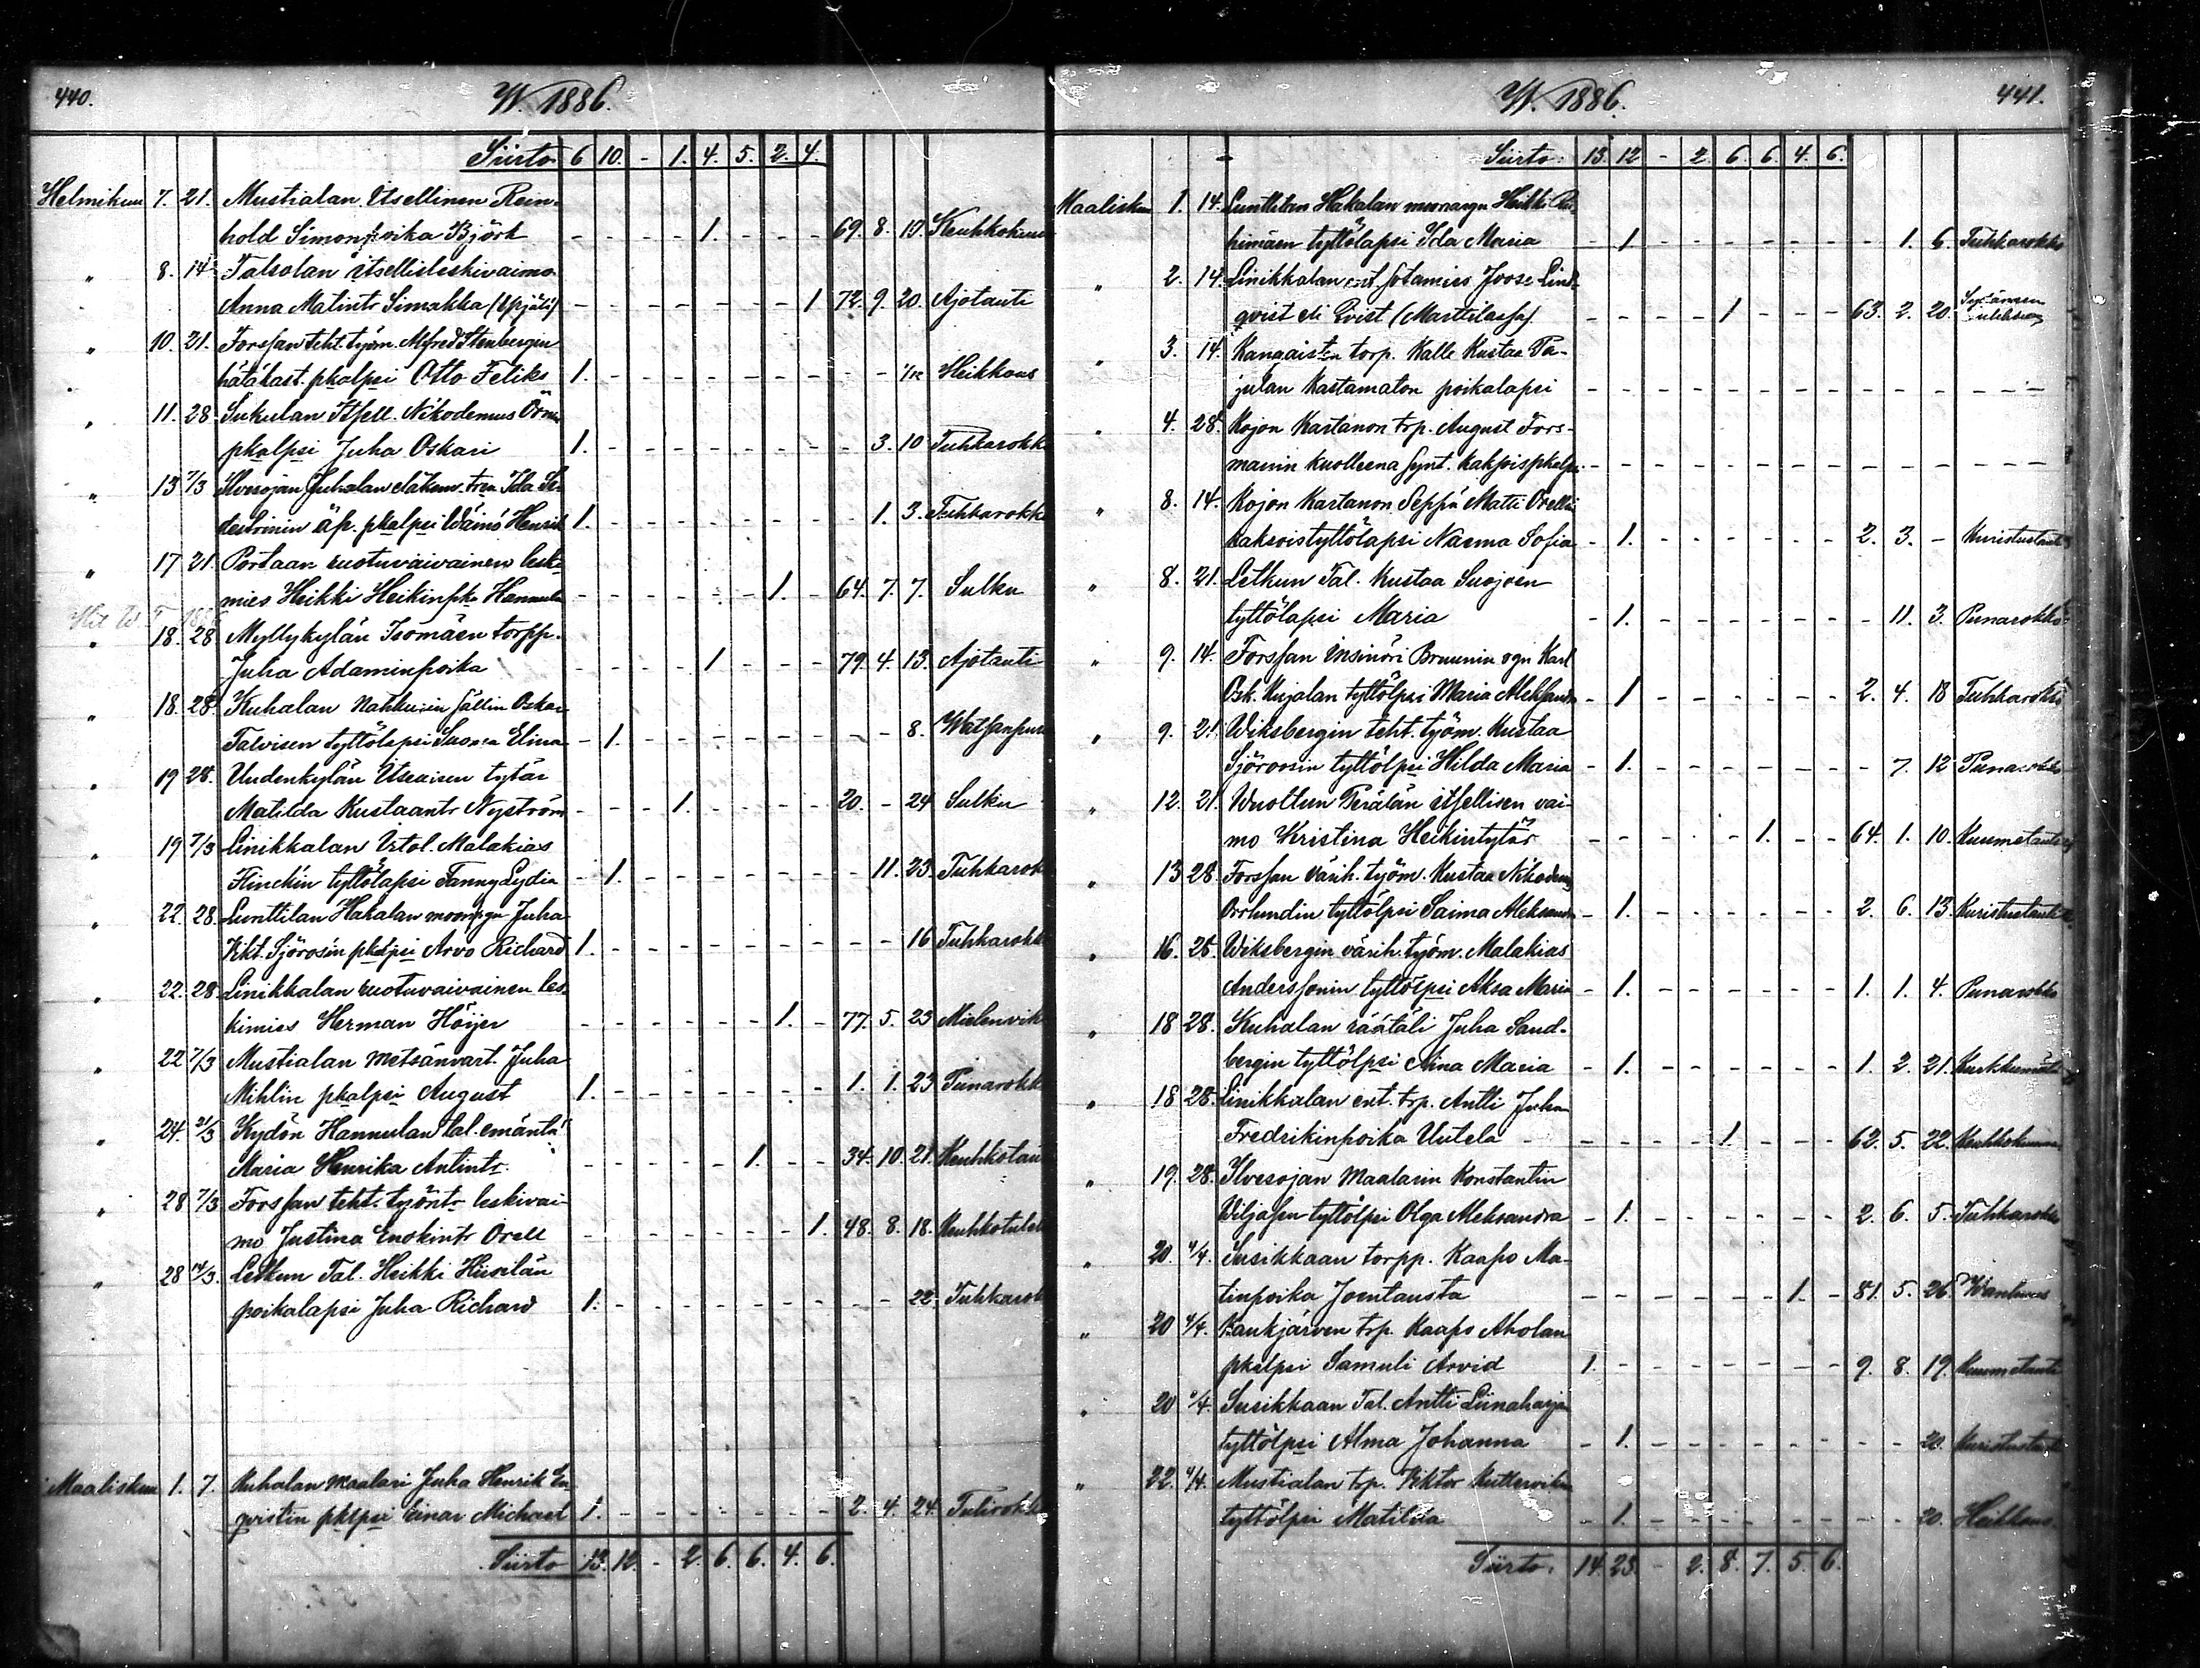 440.
W. 1886.
Siirto 6 10. - 1. 4. 5. 2. 4.
Helmikuu 7. 21. Mustialan Itsellinen Rein-
hold Simonpoika Björk - - - - 1. - - - 69. 8. 19. Keuhkokuume
" 8. 14. Talsolan itsellisleskivaimo
Anna Matintr Simakka - - - - - - - 1 72. 9. 20. Ajotauti
" 10. 21. Forssan teht. työm. Alfred Stenbergin
hätäkast. pkalpsi Otto Feliks 1. - - - - - - - - - 1/12 Heikkous
" 11. 28 Sukulan Itsell. Nikodemus
pkalpsi Juha Oskari 1. - - - - - - - - 3. 10 Tuhkarokko
" 13 7/3 Ilvesojan Juhalan Ida
äp. pkalpsi Wäinö Henrik 1. - - - - - - - - 1. 3. Tuhkarokko
" 17 21. Portaan ruotuvaivainen leski-
mies Heikki Heikinpka Hannula - - - - - - 1. - 64. 7. 7. Sulku
" 18. 28 Myllykylän Isomäen torpp.
Juha Adaminpoika - - - - 1 - - - 79. 4. 13. Ajotauti
" 18. 28. Kuhalan Nahkurin sällin Oskar
Talvisen tyttölapsi Suoma Elina - 1. - - - - - - - - 8. Watsanpuru
" 19 28. Uudenkylän Itsenäisen tytär
Matilda Kustaantr Nyström - - - 1. - - - - 20. - 24 Sulku
" 19 7/3 Linikkalan Irtol. Malakias
tyttölapsi Fanny Lydia - 1. - - - - - - - 11. 23. Tuhkarokko
" 22. 28. Lunttilan Hakalan Juha
Vikt. Sjörosin pkalpsi Arvo Richard 1. - - - - - - - - - 16 Tuhkarokko
" 22. 28. Linikkalan ruotuvaivainen les-
kimies Herman Höijer - - - - - - 1. - 77. 5. 23 Mielenvik
" 22 7/3 Mustialan metsänvart. Juha
Mihlin pkalpsi August 1. - - - - - - - 1. 1. 23 Punarokko
" 24. 21/3 Kydön Hannulan tal. emäntä
Maria Henrika Antintr. - - - - - 1. - - 34. 10. 21. Keuhkotauti
" 28 7/3 Forssan teht. työntr leskivai-
mo Justina Enokintr Orell - - - - - - - 1. 48. 8. 18. Keuhkotuleh
" 28 14/3. Letkun Tal. Heikki Hiisilän
poikalapsi Juha Richard 1. - - - - - - - - - 22. Tuhkarokko
Maaliskuu 1. 7. Kuhalan maalari Juha Henrik En-
qvistin pklpsi Einar Michael 1. - - - - - - - 2. 4. 24. Tulirokko
Siirto 13. 12. - 2. 6. 6. 4. 6.
W. 1886.
441.
Siirto: 13. 12 - 2. 6. 6. 4. 6.
Maaliskuu 1. 14. Lunttilan Hakalan Heikki
tyttölapsi Ida Maria - 1 - - - - - - - 1. 6. Tuhkarokko
" 2. 14. Linikkalan ent. sotamies Joose Lind-
qvist eli Qvist (Marttilassa) - - - - 1 - - - 63. 2. 20. Sydämen
" 3. 14. Kangaisten torp. Kalle Kustaa Pa-
julan Kastamaton poikalapsi - - - - - - - - - - -
" 4. 28. Kojon Kartanon trp. August Fors-
manin kuolleena synt. kaksoispkalpsi - - - - - - - - - - -
" 8. 14. Kojon Kartanon Seppä Matti Orellin
kaksoistyttölapsi Naema Sofia - 1. - - - - - - 2. 3. - Kuristustauti
" 8. 21. Letkun Tal. Kustaa Suojoen
tyttölapsi Maria - 1. - - - - - - - 11. 3. Punarokko
" 9. 14. Forssan Insinöri Bruunin rgn Karl
Osk. Kujalan tyttölpsi Maria Aleksandra - 1 - - - - - - 2. 4. 18 Tuhkarokko
" 9. 21. Wiksbergin teht. työm. Kustaa
Sjörosin tyttölpsi Hilda Maria - 1. - - - - - - - 7. 12 Punarokko
" 12. 21. Wuoltun Perälän itsellisen vai-
mo Kristina Heikintytär - - - - - 1. - - 64. 1. 10. Kuumetauti
" 13 28. Forssan värih. työm. Kustaa Nikodemus
Orrlundin tyttölpsi Saima Aleksandra - 1. - - - - - - 2. 6. 13. Kuristustauti
" 16. 28. Wiksbergin värih. työm. Malakias
Anderssonin tyttölpsi Aksa Maria - 1. - - - - - - 1. 1. 4. Punarokko
" 18 28. Kuhalan räätäli Juha Sand-
bergin tyttölpsi Aina Maria - 1. - - - - - - 1. 2. 21. Kurkkumätä
" 18 28. Linikkalan ent. trp. Antti Juha
Fredrikinpoika Uutela - - - - 1. - - - 62. 5. 22. Keuhkokuume
" 19. 28. Ilvesojan Maalarin Konstantin
Viljasen tyttölpsi Olga Aleksandra - 1. - - - - - - 2. 6. 5. Tuhkarokko
" 20. 4/4. Susikkaan torpp. Kaapo Ma-
tinpoika Joentausta - - - - - - 1. - 81. 5. 26. Wanhuus
" 20 4/4. Kaukjärven trp. Kaapo Aholan
pkalpsi Samuli Arvid 1. - - - - - - - 9. 8. 19. Kuumetauti
" 20 4/4. Susikkaan Tal. Antti Liinaharja
tyttölpsi Alma Johanna - 1. - - - - - - - - 20. Kuristustauti
" 22. 4/4. Mustialan trp. Viktor
tyttölpsi Matilda - 1. - - - - - - - - 20. Heikkous
Siirto: 14. 23. - 2. 8. 7. 5. 6.